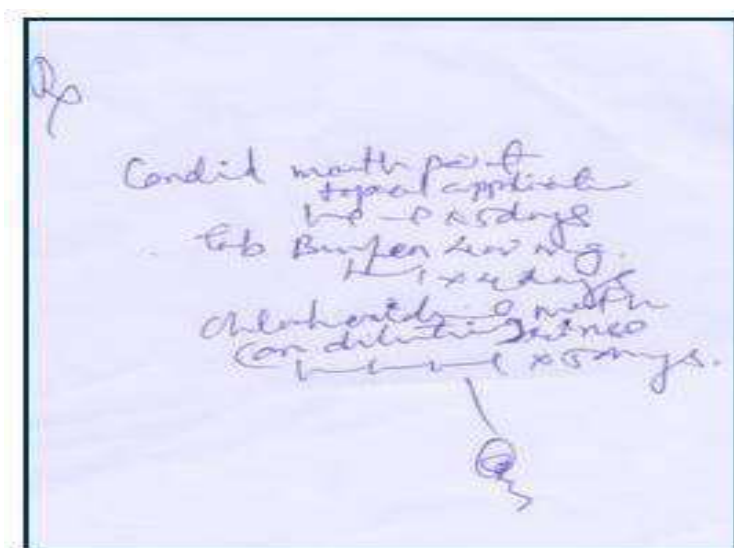 Rx
Candid mouth paint
topical application
x 5 days
Tab Brufen 400 mg.
1 x 4 days
Chlorhexidine mouth
rinse
x 5 days.